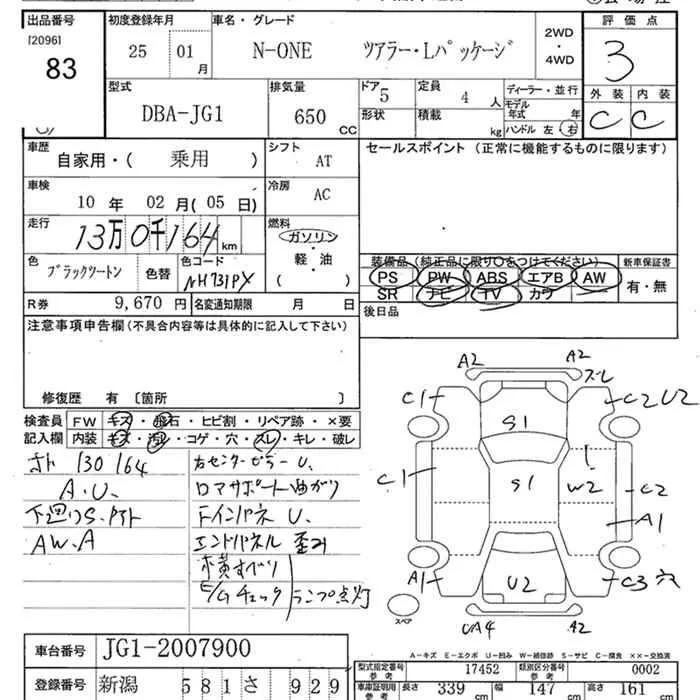 出品番号 初度登録年月 車名・グレード 評価点
[2096] 83
25 01 月 N-ONE ツアラー・Lパッケージ 2WD・4WD 3
型式 排気量 ドア 5 定員 4 人 ディーラー・並行 外装 内装
DBA-JG1 650 CC 形状 積載 kg モデル年式 年 C C
ハンドル 左 右
車歴 シフト セールスポイント (正常に機能するものに限ります)
自家用・( 乗用 ) AT
車検 冷房
10 年 02 月(05 日) AC
走行 13万0千164 km 燃料
ガソリン・軽油
( )
色 ブラックツートン 色替 色コード NH731PX
装備品 (純正品に限り○をつけてください) 新車保証書
PS PW ABS エアB AW 有・無
SR ナビ TV カワ
R券 9,670 円 名変通知期限 月 日
後日品
注意事項申告欄(不具合内容等は具体的に記入して下さい)
修復歴 有 〔箇所 〕
検査員 FW キズ・飛石・ヒビ割・リペア跡・×要
記入欄 内装 キズ・汚れ・コゲ・穴・スレ・キレ・破レ
130164 右センターピラーU、
A.U. ロアサポート曲がり
下廻りS、 FインパネU、
AW.A エンドパネル 歪み
横すべり
E/Gチェックランプ点灯
A2 A2 ズレ
C1 C2 U2
S1
C1 S1 W2 C2
A1
A1 U2 C3 穴
UA4 A2
スペア
A-キズ E-エクボ U-凹み W-補修跡 S-サビ C-腐食 ××-交換済
車台番号 JG1-2007900
型式指定番号 参考 17452 類別区分番号 参考 0002
登録番号 新潟 581 さ 929
車庫証明用 参考 長さ 339 cm 幅 147 cm 高さ 161 cm